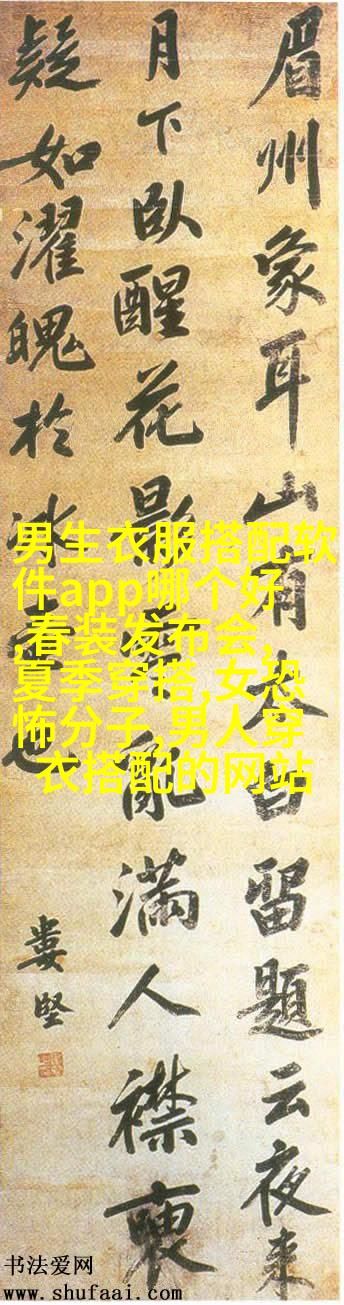 眉州象耳山有李白留題云夜来
月下臥醒花影零亂滿人襟
疑如濯魄於冰壺也
婁堅
男生衣服搭配软
件app哪个好
,春装发布会,
夏季穿搭,女恐
怖分子,男人穿
衣搭配的网站
书法爱网
www.shufaai.com